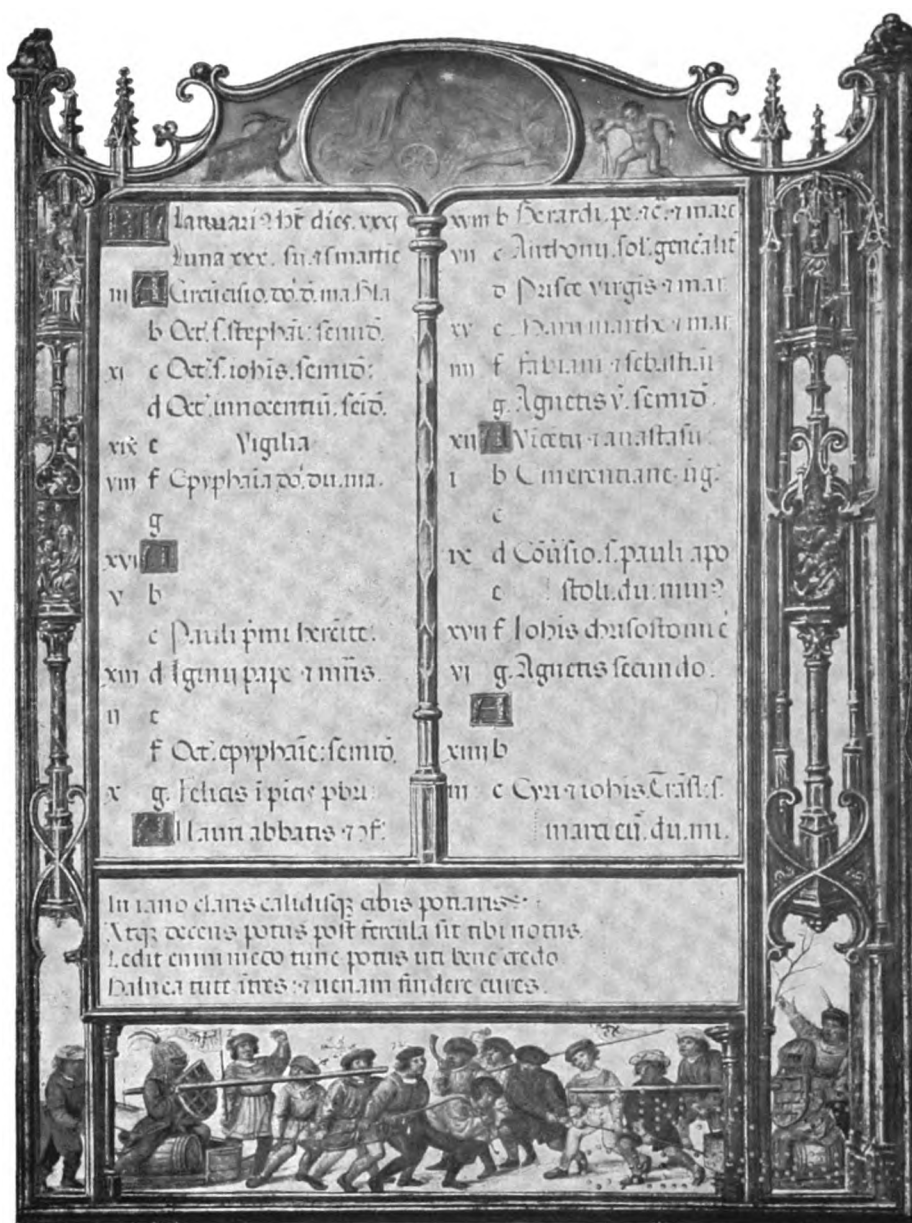 KL Ianuari⁹ ht̄ dies. xxxi
Luna xxx. fu. ismartie
iii A Circūcisio. do. d̄. ma
b Oct. s. stephāi: semid̄.
xi c Oct. s. iohis. semid̄:
d Oct. innocentiū. seīd̄.
xix e Vigilia
viii f Epyphaīa do. du. ma.
g
xvi A
v b
c Pauli p̄mi heremite:
xiii d Iginij pape ⁊ mr̄is.
ii e
f Oct. epyphaīe: semid̄.
x g. Felicis ī picis pbri:
A Mauri abbatis ⁊ ꝯf:
xviii b Berardi. pe. ⁊ mart
vii c Anthonij. sol. gen̄alit
d Prisce virgis ⁊ mar.
xv e Marij marthe ⁊ mar.
iiii f fabiani ⁊ sebastiani
g. Agnetis v̄. semid̄.
xii A Vīcētij ⁊ anastasij:
i b Emerentiane
c
ix d Cōūsio. s. pauli. apo
e stoli. du. min⁹
xvii f Iohis chrisostomi
vi g. Agnetis secundo.
A
xiiii b
iii c Cyri ⁊ iohis. Trāsl: s.
marci eū. du. mi.
In iano claris calidisqꝫ cibis potiaris
Atqꝫ decens potus post fercula sit tibi notus.
Ledit enim medo tunc potus uti bene credo
Balnea tute ītres: ⁊ uenam findere cures.